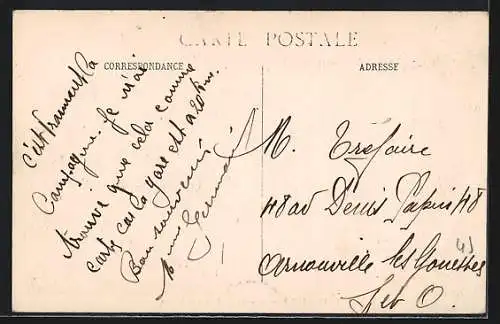 CARTE POSTALE
CORRESPONDANCE
ADRESSE
c'est vraiment la
Campagne. Je n'ai
trouvé que cela comme
carte car la gare est à 20 km.
Bon souvenir
M. Tréfaire
48 av Denis Papin 48
Arnouville les Gonesses
S et O.